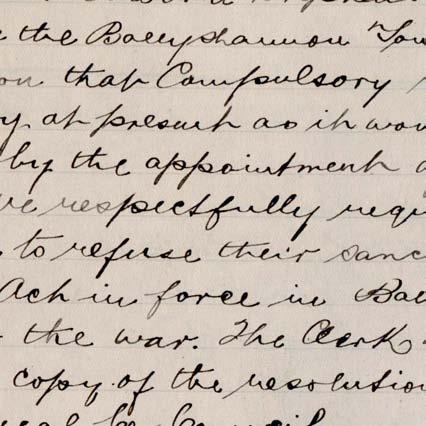 the Ballyshannon Tow
on that Compulsory
at present as it wou
by the appointment
we respectfully requ
to refuse their sanc
Act in force in Bal
the war. The Clerk
copy of the resolution